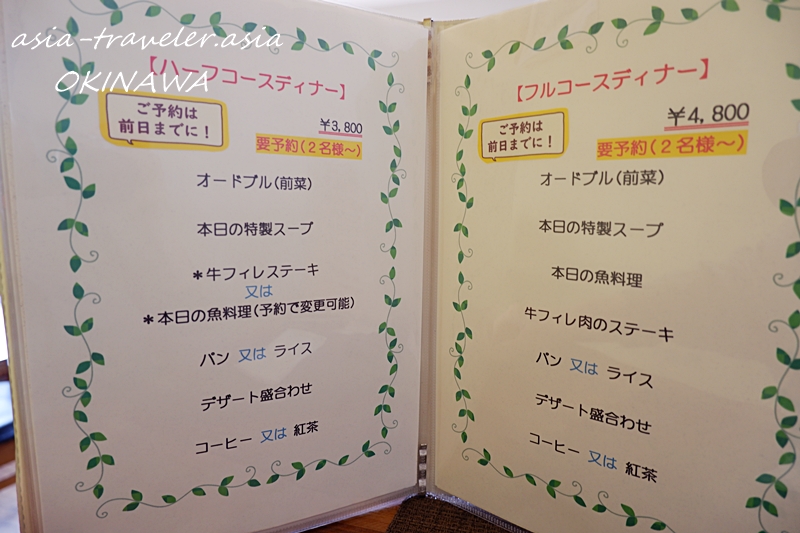 asia-traveler.asia
OKINAWA
【ハーフコースディナー】
ご予約は
前日までに！
￥3,800
要予約(２名様～)
オードブル(前菜)
本日の特製スープ
＊牛フィレステーキ
又は
＊本日の魚料理(予約で変更可能)
パン 又は ライス
デザート盛合わせ
コーヒー 又は 紅茶
【フルコースディナー】
ご予約は
前日までに！
￥4,800
要予約(２名様～)
オードブル(前菜)
本日の特製スープ
本日の魚料理
牛フィレ肉のステーキ
パン 又は ライス
デザート盛合わせ
コーヒー 又は 紅茶